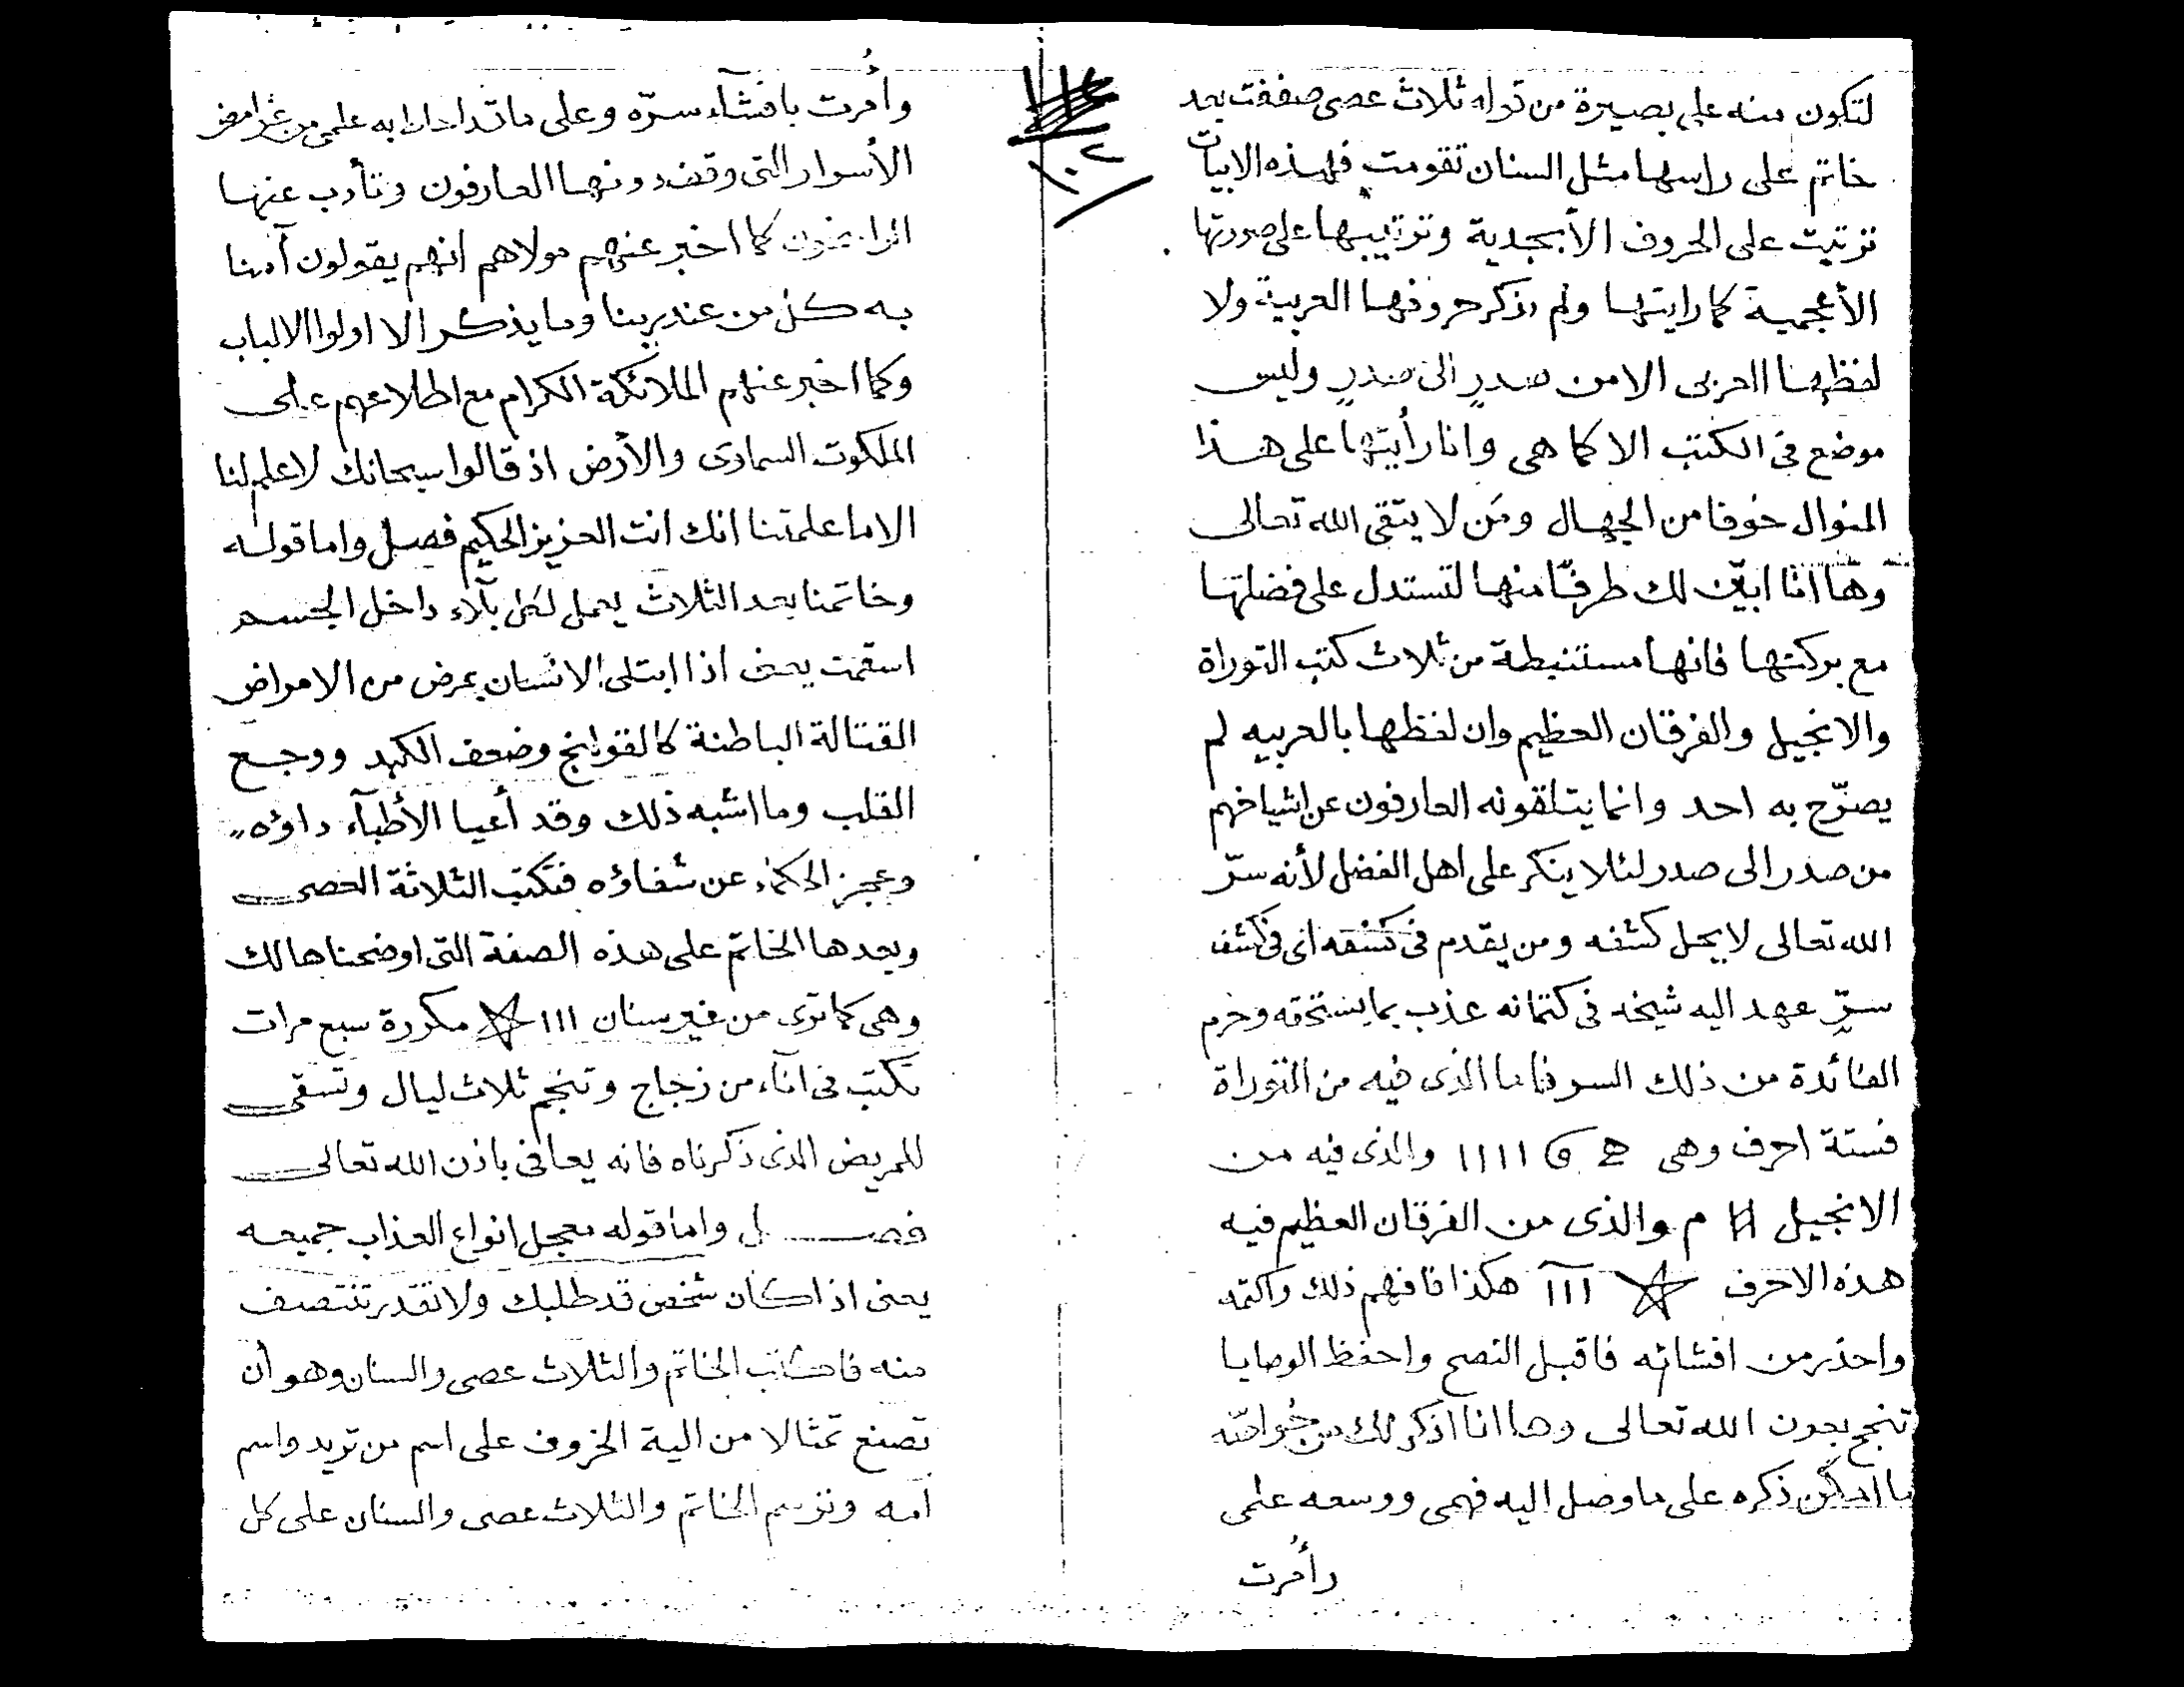 لتكون منه على بصيرة من قوله ثلاث عصى صففت بعد
خاتم على راسها مثل السنان تقومت فهذه الابيات
ترتبت على الحروف الأبجدية وترتيبها على صورتها
الأعجمية كما رايتها ولم نذكر حروفها العربية ولا
لفظها العربى الا من صدرٍ الى صدرٍ وليس
موضع فى الكتب الا كما هى وانا رأيتها على هذا
المنوال خوفا من الجهال ومَن لا يتقى الله تعالى
وها انا ابيّن لك طرفًا منها لتستدل على فضلتها
مع بركتها فانها مستنبطة من ثلاث كتب التوراة
والانجيل والفرقان العظيم وان لفظها بالعربيه لم
يصرّح به احد وانما يتلقونه العارفون عن اشياخهم
من صدر الى صدر لئلا ينكر على اهل الفضل لأنه سرّ
الله تعالى لا يحل كشفه ومن يقدم فى كشفه اى فى كشف
سرٍّ عهد اليه شيخه فى كتمانه عذب بما يستحقه وحرم
الفائدة من ذلك السر فاما الذى فيه من التوراة
فستة احرف وهى ١١١١ والذى فيه من
الانجيل # م والذى من الفرقان العظيم فيه
هذه الاحرف ☆ ١١١ هكذا فافهم ذلك واكتمه
واحذر من افشائه فاقبل النصح واحفظ الوصايا
تنجح بعون الله تعالى وها انا اذكر لك من خواصّه
ما امكن ذكره على ما وصل اليه فهمى ووسعه علمى
وأُمرت
١٠٢
وأُمرت بافشآء سرّه وعلى ما قد احاط به علمى من غوامض
الأسرار التى وقف دونها العارفون وتأدب عنها
الراسخون كما اخبر عنهم مولاهم انهم يقولون آمنا
به كل من عند ربنا وما يذكر الا اولوا الالباب
وكما اخبر عنهم الملائكة الكرام مع اطلاعهم على
الملكوت السماوى والأرض اذ قالوا سبحانك لا علم لنا
الا ما علمتنا انك انت العزيز الحكيم فصل واما قوله
وخاتمنا بعد الثلاث يحمل لكل بلآء داخل الجسم
اسقمت يعنى اذا ابتلى الانسان بمرض من الامراض
القتالة الباطنة كالقولنج وضعف الكبد ووجع
القلب وما اشبه ذلك وقد أعيا الأطبآء داؤه
وعجز الحكماء عن شفاؤه فتكتب الثلاثة العصى
وبعدها الخاتم على هذه الصفة التى اوضحناها لك
وهى كما ترى من غير سنان ١١١ ☆ مكررة سبع مرات
تكتب فى انآء من زجاج وتنجم ثلاث ليال وتسقى
للمريض الذى ذكرناه فانه يعافى باذن الله تعالى
فصـــل واما قوله معجل انواع العذاب جميعه
يعنى اذا كان شخص قد طلبك ولا تقدر تنتصف
منه فاكتب الخاتم والثلاث عصى والسنان وهو أن
تصنع تمثالا من الية الخروف على اسم من تريد واسم
امه وترسم الخاتم والثلاث عصى والسنان على كل